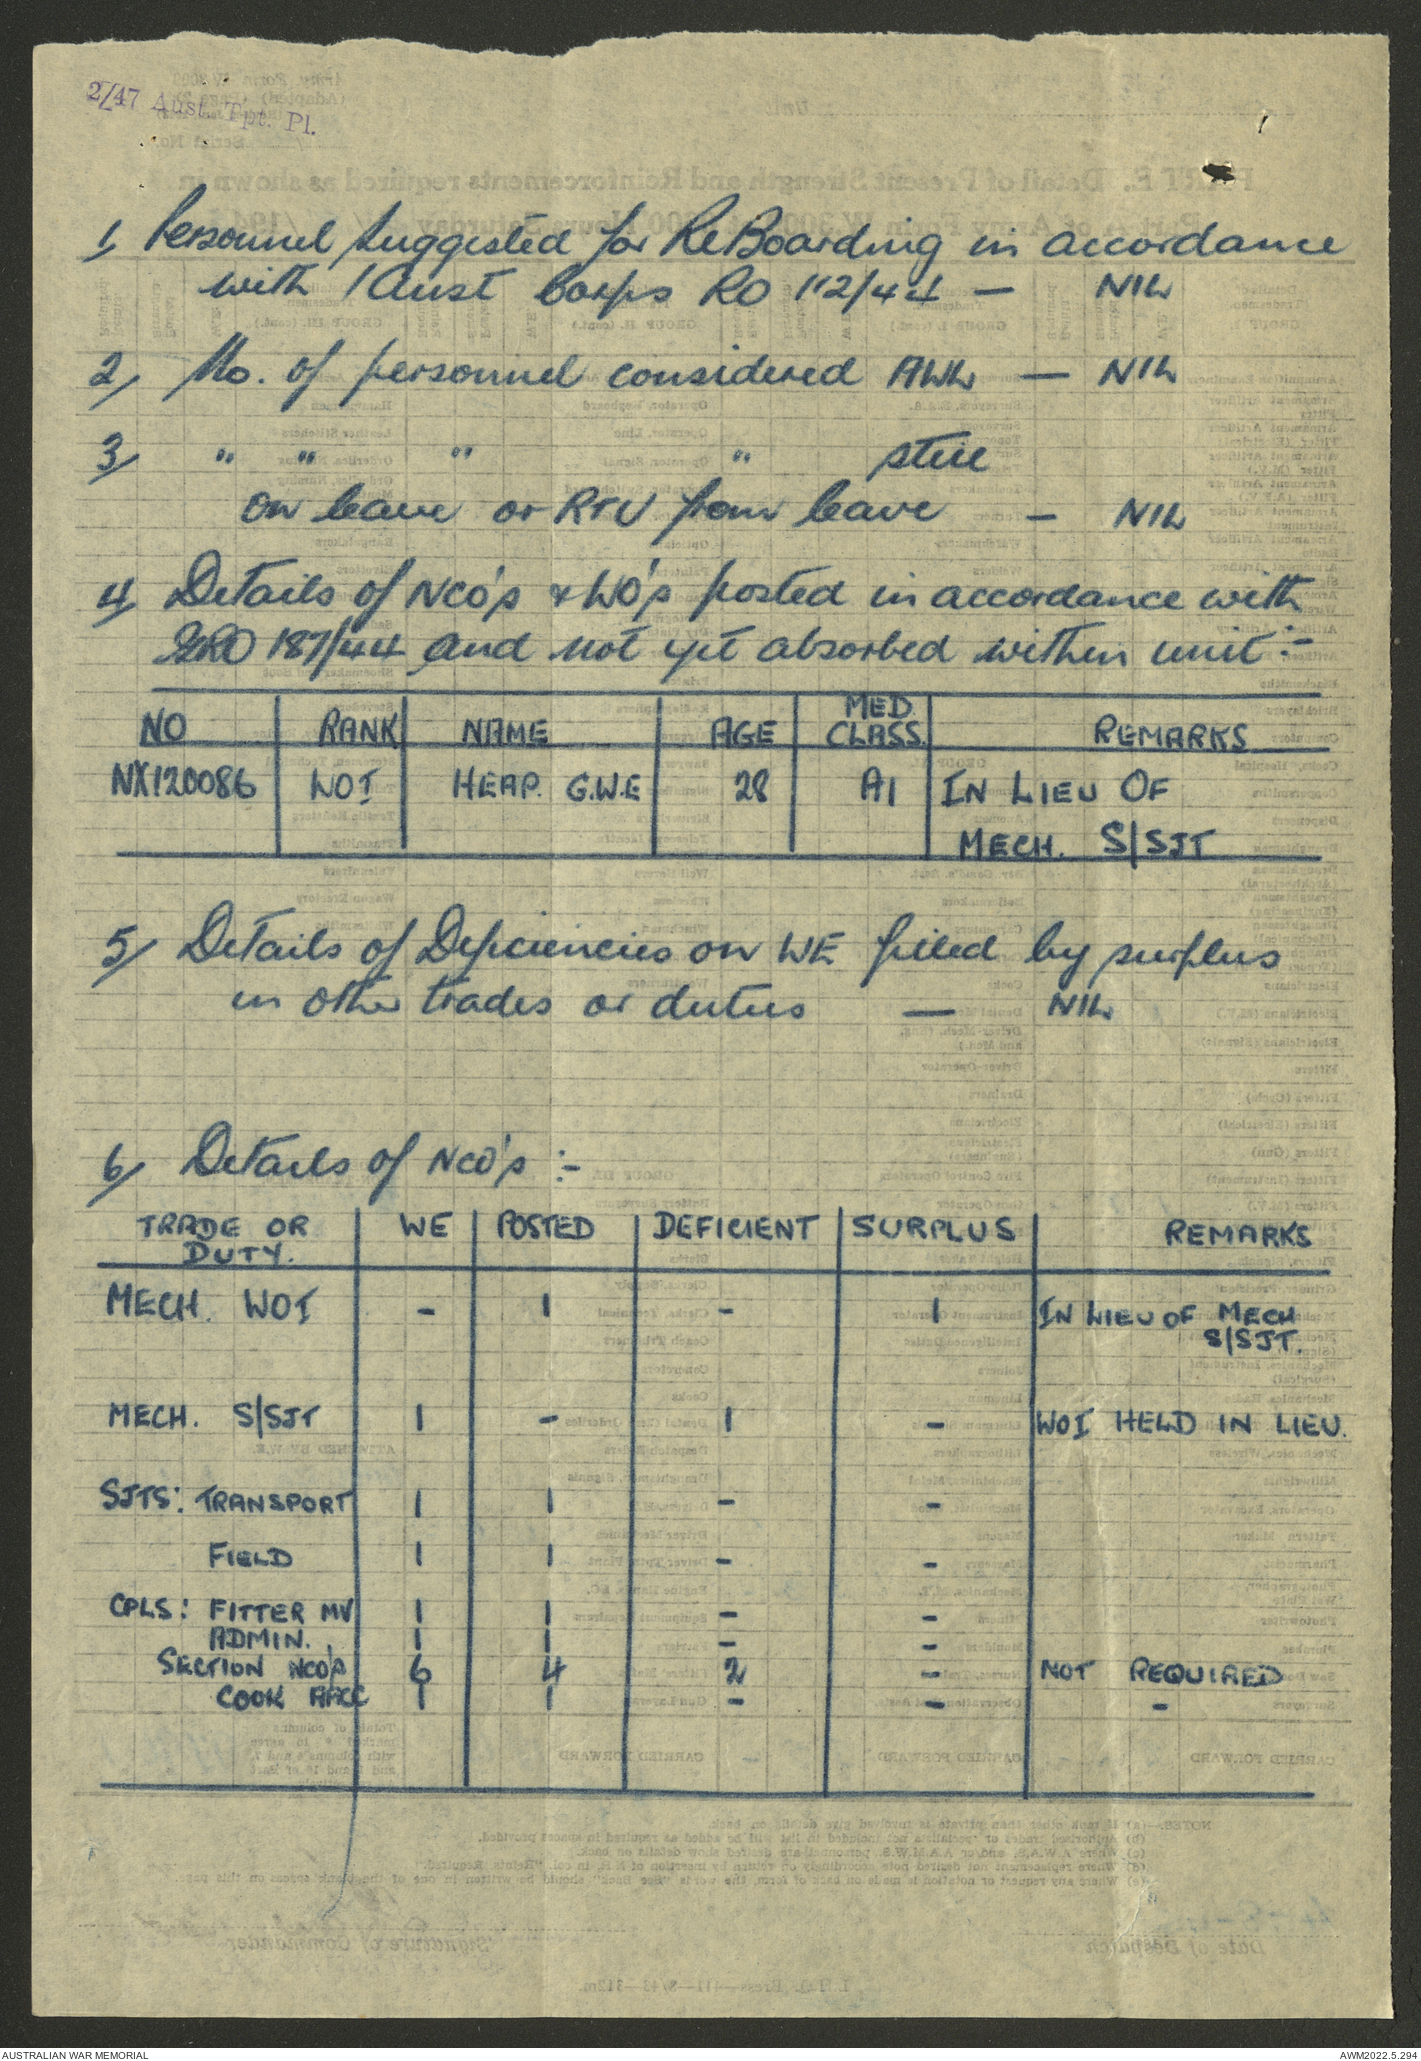 2/47 Aust. Tpt. Pl.
1, Personnel Suggested for ReBoarding in accordance
with 1 Aust Corps RO 112/44 — NIL
2/ No. of personnel considered AWL — NIL
3/ " " " " still
on leave or RTU from leave — NIL
4/ Details of NCO's & WO's posted in accordance with
GRO 187/44 and not yet absorbed within unit:-
NO RANK NAME AGE MED. CLASS. REMARKS
NX120086 WOI HEAP. G.W.E 28 A1 IN LIEU OF
MECH. S/SJT
5/ Details of Deficiencies on WE filled by surplus
in other trades or duties — NIL
6/ Details of NCO's :-
TRADE OR DUTY. WE POSTED DEFICIENT SURPLUS REMARKS
MECH. WOI - 1 - 1 IN LIEU OF MECH
S/SJT.
MECH. S/SJT 1 - 1 - WOI HELD IN LIEU.
SJTS: TRANSPORT 1 1 - -
FIELD 1 1 - -
CPLS: FITTER MV 1 1 - -
ADMIN. 1 1 - -
SECTION NCO's 6 4 2 - NOT REQUIRED
COOK AACC 1 1 - - -
AUSTRALIAN WAR MEMORIAL
AWM2022.5.294